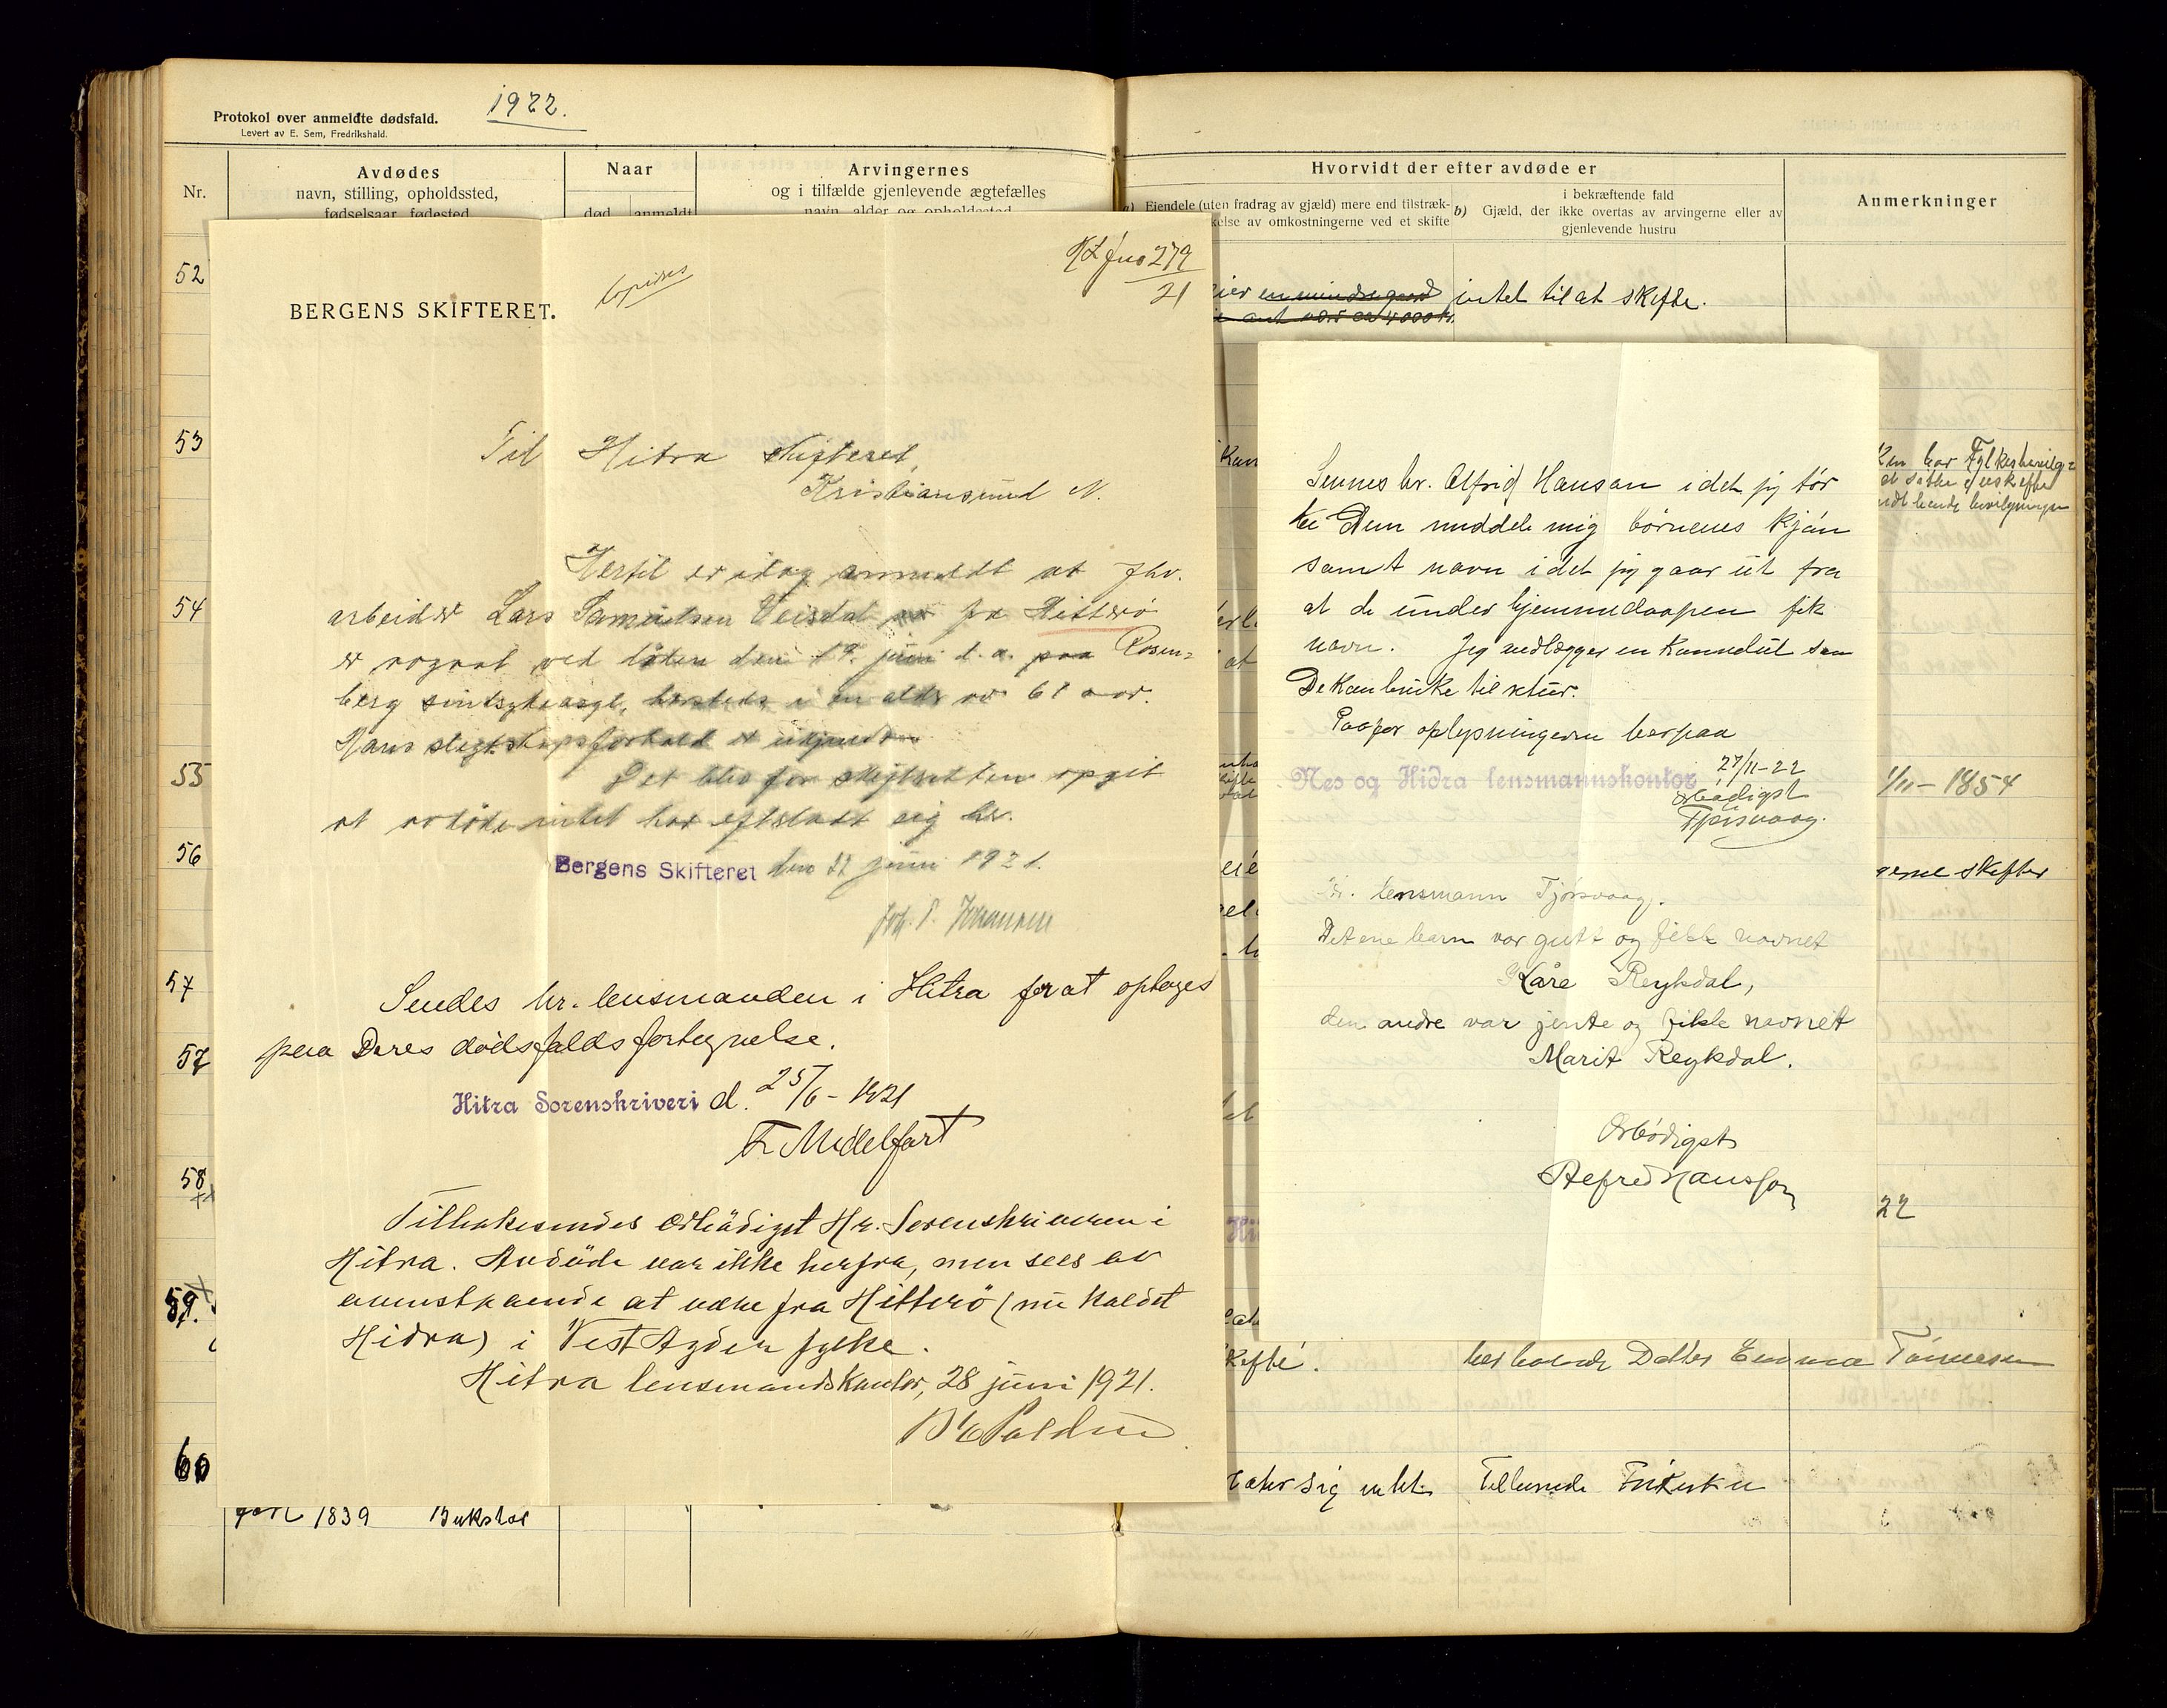 1922.
Protokol over anmeldte dødsfald.
Levert av E. Sem, Fredrikshald.
Nr.
Avdødes
navn, stilling, opholdssted,
fødselsaar, fødested
Naar
død anmeldt
Arvingernes
og i tilfælde gjenlevende ægtefælles
navn, alder og opholdssted
52
53
54
55
56
57
57
58
59.
60
født 1839 Bukstal
kopieres
279
21
BERGENS SKIFTERET.
Til Hitra Skifteret,
Kristiansund N.
Hertil er idag anmeldt at fhv.
arbeider Lars Samuelsen Veisdal fra Hitterö
er avgaat ved döden den 19. juni d.a. paa Rosen-
berg sindsykeasyl, hersteds i en alder av 61 aar.
Hans slegtskapsforhold er
Det blev for skifteretten opgit
at avdöde intet har efterlatt sig her.
Bergens Skifteret den 22 juni 1921.
Sendes hr. lensmanden i Hitra for at optages
paa Deres dödsfaldsfortegnelse.
Hitra Sorenskriveri d. 25/6 - 1921
F. Midelfart
Tilbakesendes ærbödigst Hr. Sorenskriveren i
Hitra. Avdöde var ikke herfra, men sees av
ovenstaaende at være fra Hitterö (nu kaldet
Hidra) i Vest Agder fylke.
Hitra lensmandskontor, 28 juni 1921.
Hvorvidt der efter avdøde er
a) Eiendele (uten fradrag av gjæld) mere end tilstræk-
kelse av omkostningerne ved et skifte
i bekræftende fald
b) Gjæld, der ikke overtas av arvingerne eller av
gjenlevende hustru
Anmerkninger
intet til at skifte.
Sendes hr. Alfred Hanson idet jeg tør
be Dem meddele mig børnenes kjøn
samt navn idet jeg gaar ut fra
at de under hjemmedaapen fik
navn. Jeg vedlægger en konvolut som
De kan bruke til retur.
Paafør oplysningerne herpaa
Nes og Hidra lensmannskontor 27/11-22
Ærbødigst
Tjørsvaag.
Hr. lensmann Tjørsvaag.
Det ene barn var gutt og fikk navnet
Kåre Reykdal,
den andre var jente og fikk navnet
Marit Reykdal.
Ærbødigst
Alfred Hansson
1/11 - 1854
skifter
22
skifte.
Datter Emma Tønnesen
sig intet